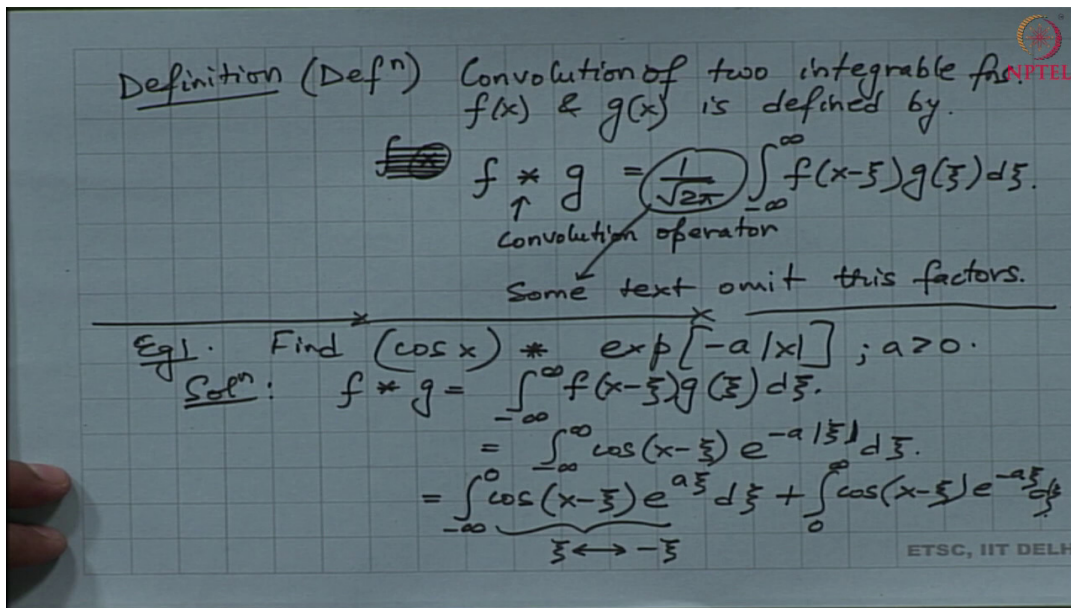 NPTEL
Definition (Defⁿ) Convolution of two integrable fns.
f(x) & g(x) is defined by.
f * g = 1/√2π ∫_{-∞}^{∞} f(x-ξ)g(ξ)dξ.
↑
convolution operator
Some text omit this factors.
Eg1. Find (cos x) * exp[-a|x|] ; a>0.
Solⁿ: f * g = ∫_{-∞}^{∞} f(x-ξ)g(ξ)dξ.
= ∫_{-∞}^{∞} cos(x-ξ) e^{-a|ξ|} dξ.
= ∫_{-∞}^{0} cos(x-ξ) e^{aξ} dξ + ∫_{0}^{∞} cos(x-ξ) e^{-aξ} dξ
ξ ↔ -ξ
ETSC, IIT DELH